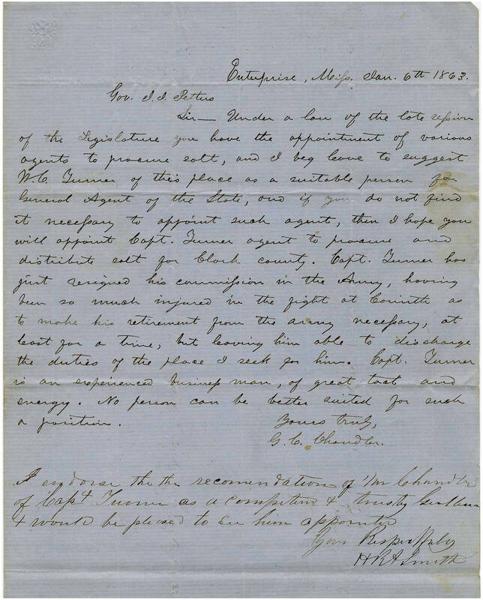 Enterprise, Miss. Jan. 6th 1863.
Gov. J. J. Pettus
Sir — Under a law of the late session
of the Legislature you have the appointment of various
agents to procure salt, and I beg leave to suggest
W. C. Turner of this place as a suitable person for
General Agent of the State, and if you do not find
it necessary to appoint such agent, then I hope you
will appoint Capt. Turner agent to procure and
distribute salt for Clark county. Capt. Turner has
just resigned his commission in the Army, having
been so much injured in the fight at Corinth as
to make his retirement from the army necessary, at
least for a time, but leaving him able to discharge
the duties of the place I seek for him. Capt. Turner
is an experienced business man, of great tact and
energy. No person can be better suited for such
a position.
Yours truly,
G. C. Chandler.
I endorse the the recomendation of Mr Chandler
of Capt Turner as a competent & trusty
& would be pleased to see him appointed
Respectfully
Smith